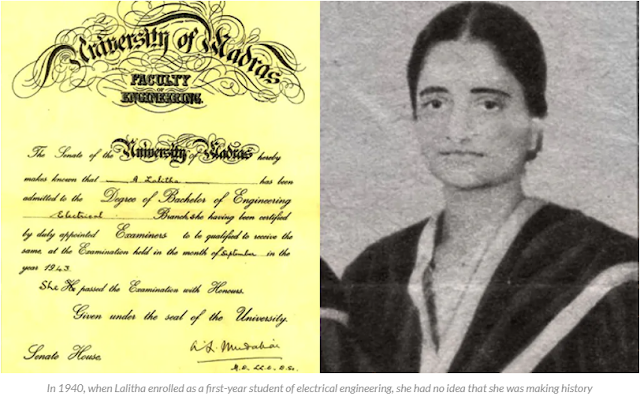 University of Madras
FACULTY
OF
ENGINEERING.
The Senate of the University of Madras hereby
makes known that A Lalitha has been
admitted to the Degree of Bachelor of Engineering
Electrical Branch, she having been certified
by duly appointed Examiners to be qualified to receive the
same, at the Examination held in the month of September in the
year 1943.
She He passed the Examination with Honours.
Given under the seal of the University.
Senate House.
A. L. Mudaliar
M.D., LL.D., D.Sc.
In 1940, when Lalitha enrolled as a first-year student of electrical engineering, she had no idea that she was making history